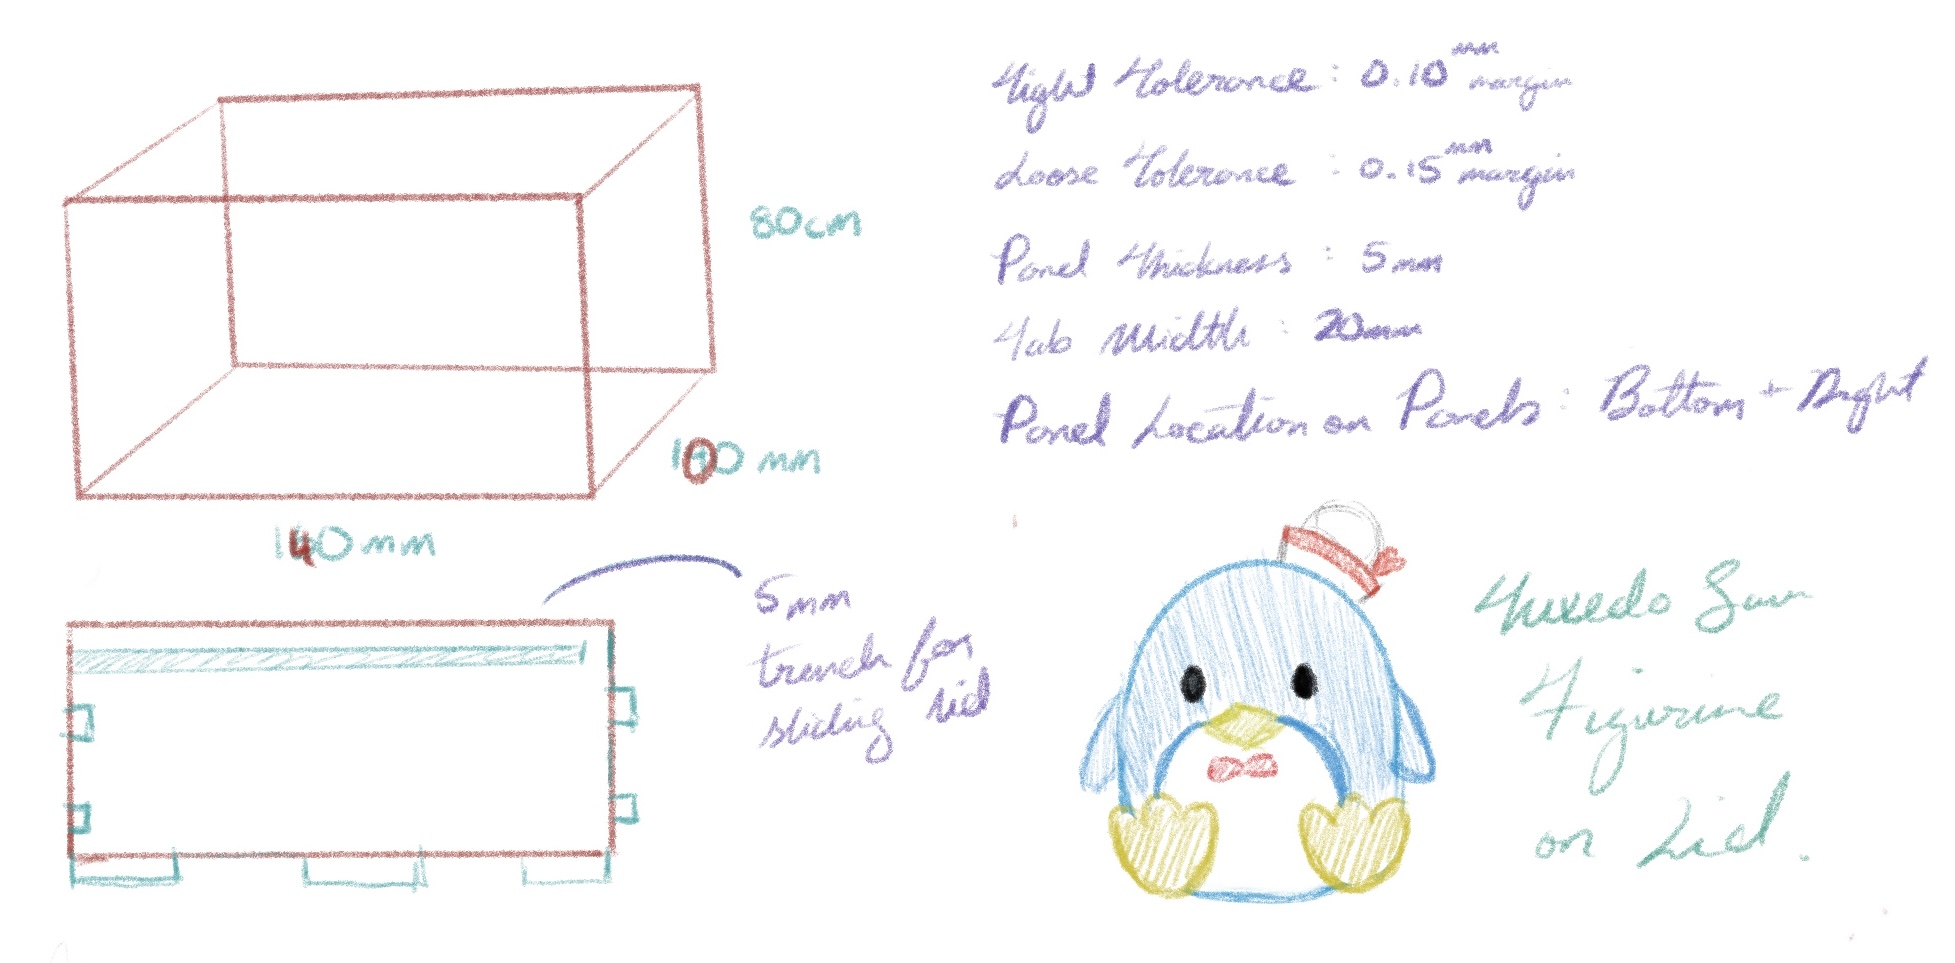 80cm
100 mm
140 mm
5mm
trench for
sliding lid
Tight Tolerance : 0.10 mm margin
Loose Tolerance : 0.15 mm margin
Panel Thickness : 5mm
Tab Width : 20mm
Panel Location on Panels : Bottom + Right
Tuxedo Sam
Figurine
on Lid.